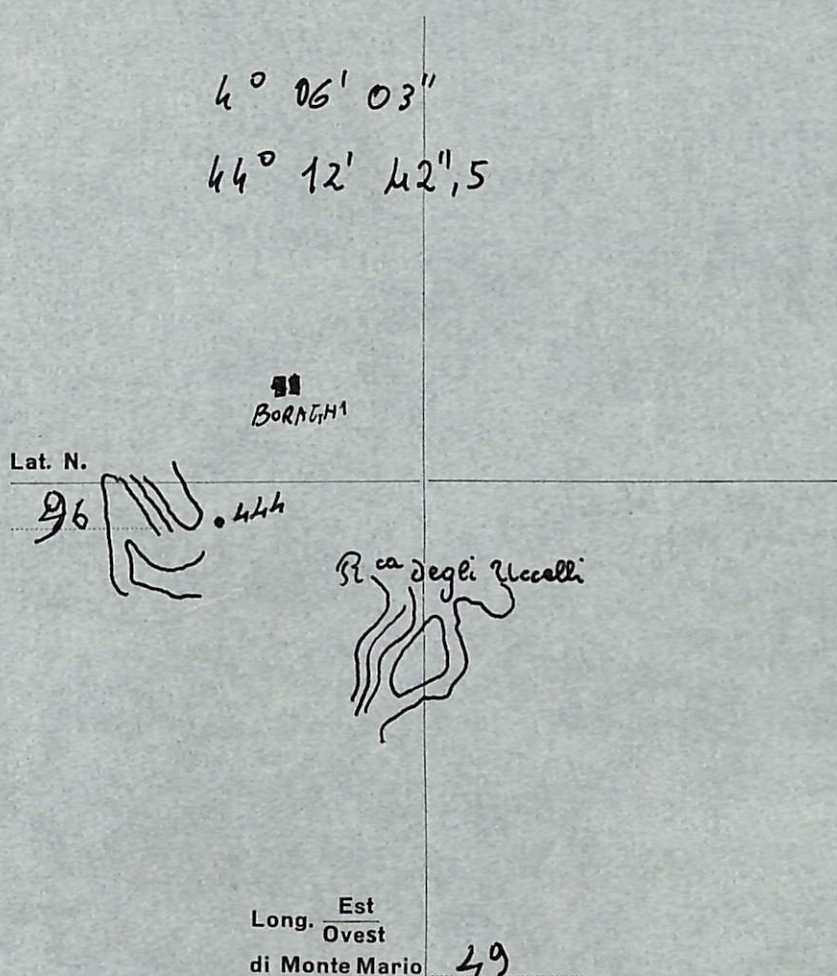 4° 06' 03"
44° 12' 42",5
BORAGHI
Lat. N.
96
.444
R ca degli Uccelli
Long. Est
Ovest
di Monte Mario 49